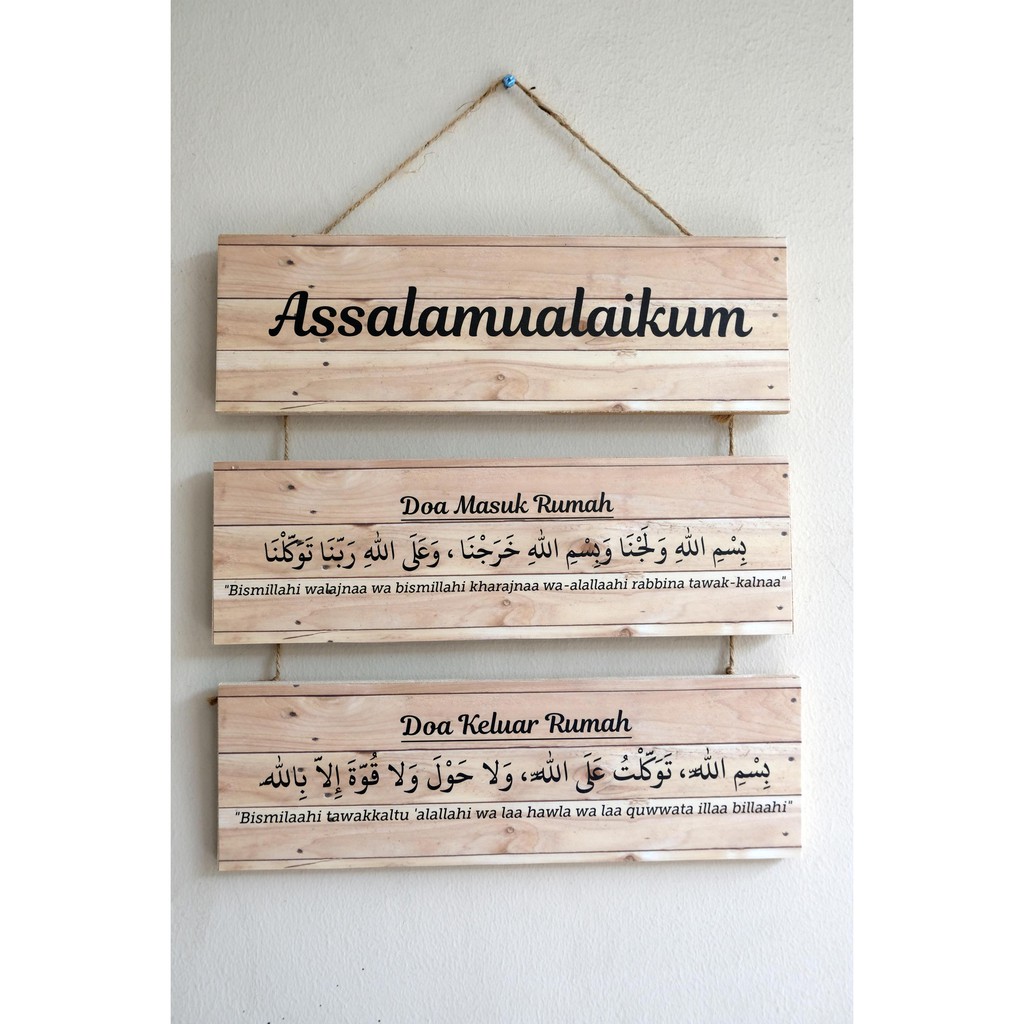 Assalamualaikum
Doa Masuk Rumah
بِسْمِ اللهِ وَلَجْنَا وَبِسْمِ اللهِ خَرَجْنَا ، وَعَلَى اللهِ رَبّنَا تَوَكّلْنَا
"Bismillahi walajnaa wa bismillahi kharajnaa wa-alallaahi rabbina tawak-kalnaa"
Doa Keluar Rumah
بِسْمِ اللهِ، تَوَكّلْتُ عَلَى اللهِ، وَلا حَوْلَ وَلا قُوّةَ إِلاّ بِاللهِ
"Bismilaahi tawakkaltu 'alallahi wa laa hawla wa laa quwwata illaa billaahi"